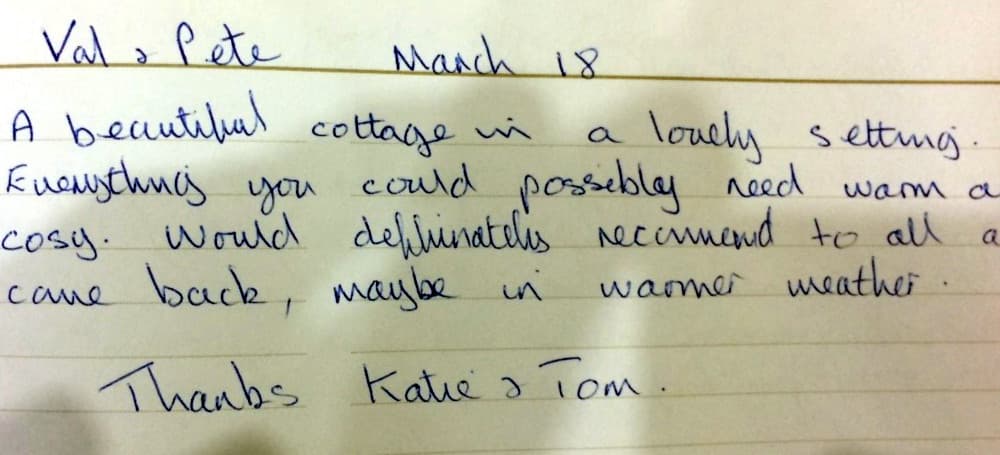 Val & Pete March 18
A beautiful cottage in a lovely setting.
Everything you could possibly need warm a
cosy. Would deffinately recommend to all a
come back, maybe in warmer weather.
Thanks Katie & Tom.